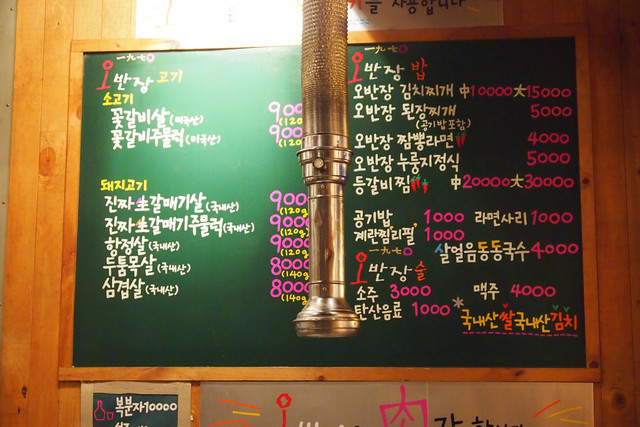 를 사용합니다
一九七〇
오반장 고기
소고기
꽃갈비살 (미국산) 900
(120
꽃갈비주물럭 (미국산) 900
(120
돼지고기
진짜生갈매기살 (국내산) 9000
(120g
진짜生갈매기주물럭 (국내산) 9000
(120g
항정살 (국내산) 9000
(120g
두툼목살 (국내산) 8000
(140g
삼겹살 (국내산) 8000
(140g
一九七〇
오반장 밥
오반장 김치찌개 中10000 大15000
오반장 된장찌개 5000
(공기밥포함)
오반장 짬뽕라면 4000
오반장 누룽지정식 5000
등갈비찜 中20000 大30000
공기밥 1000 라면사리 1000
계란찜리필 1000
살얼음동동국수 4000
一九七〇
오반장 술
소주 3000 맥주 4000
탄산음료 1000
*국내산쌀국내산김치
복분자10000
肉